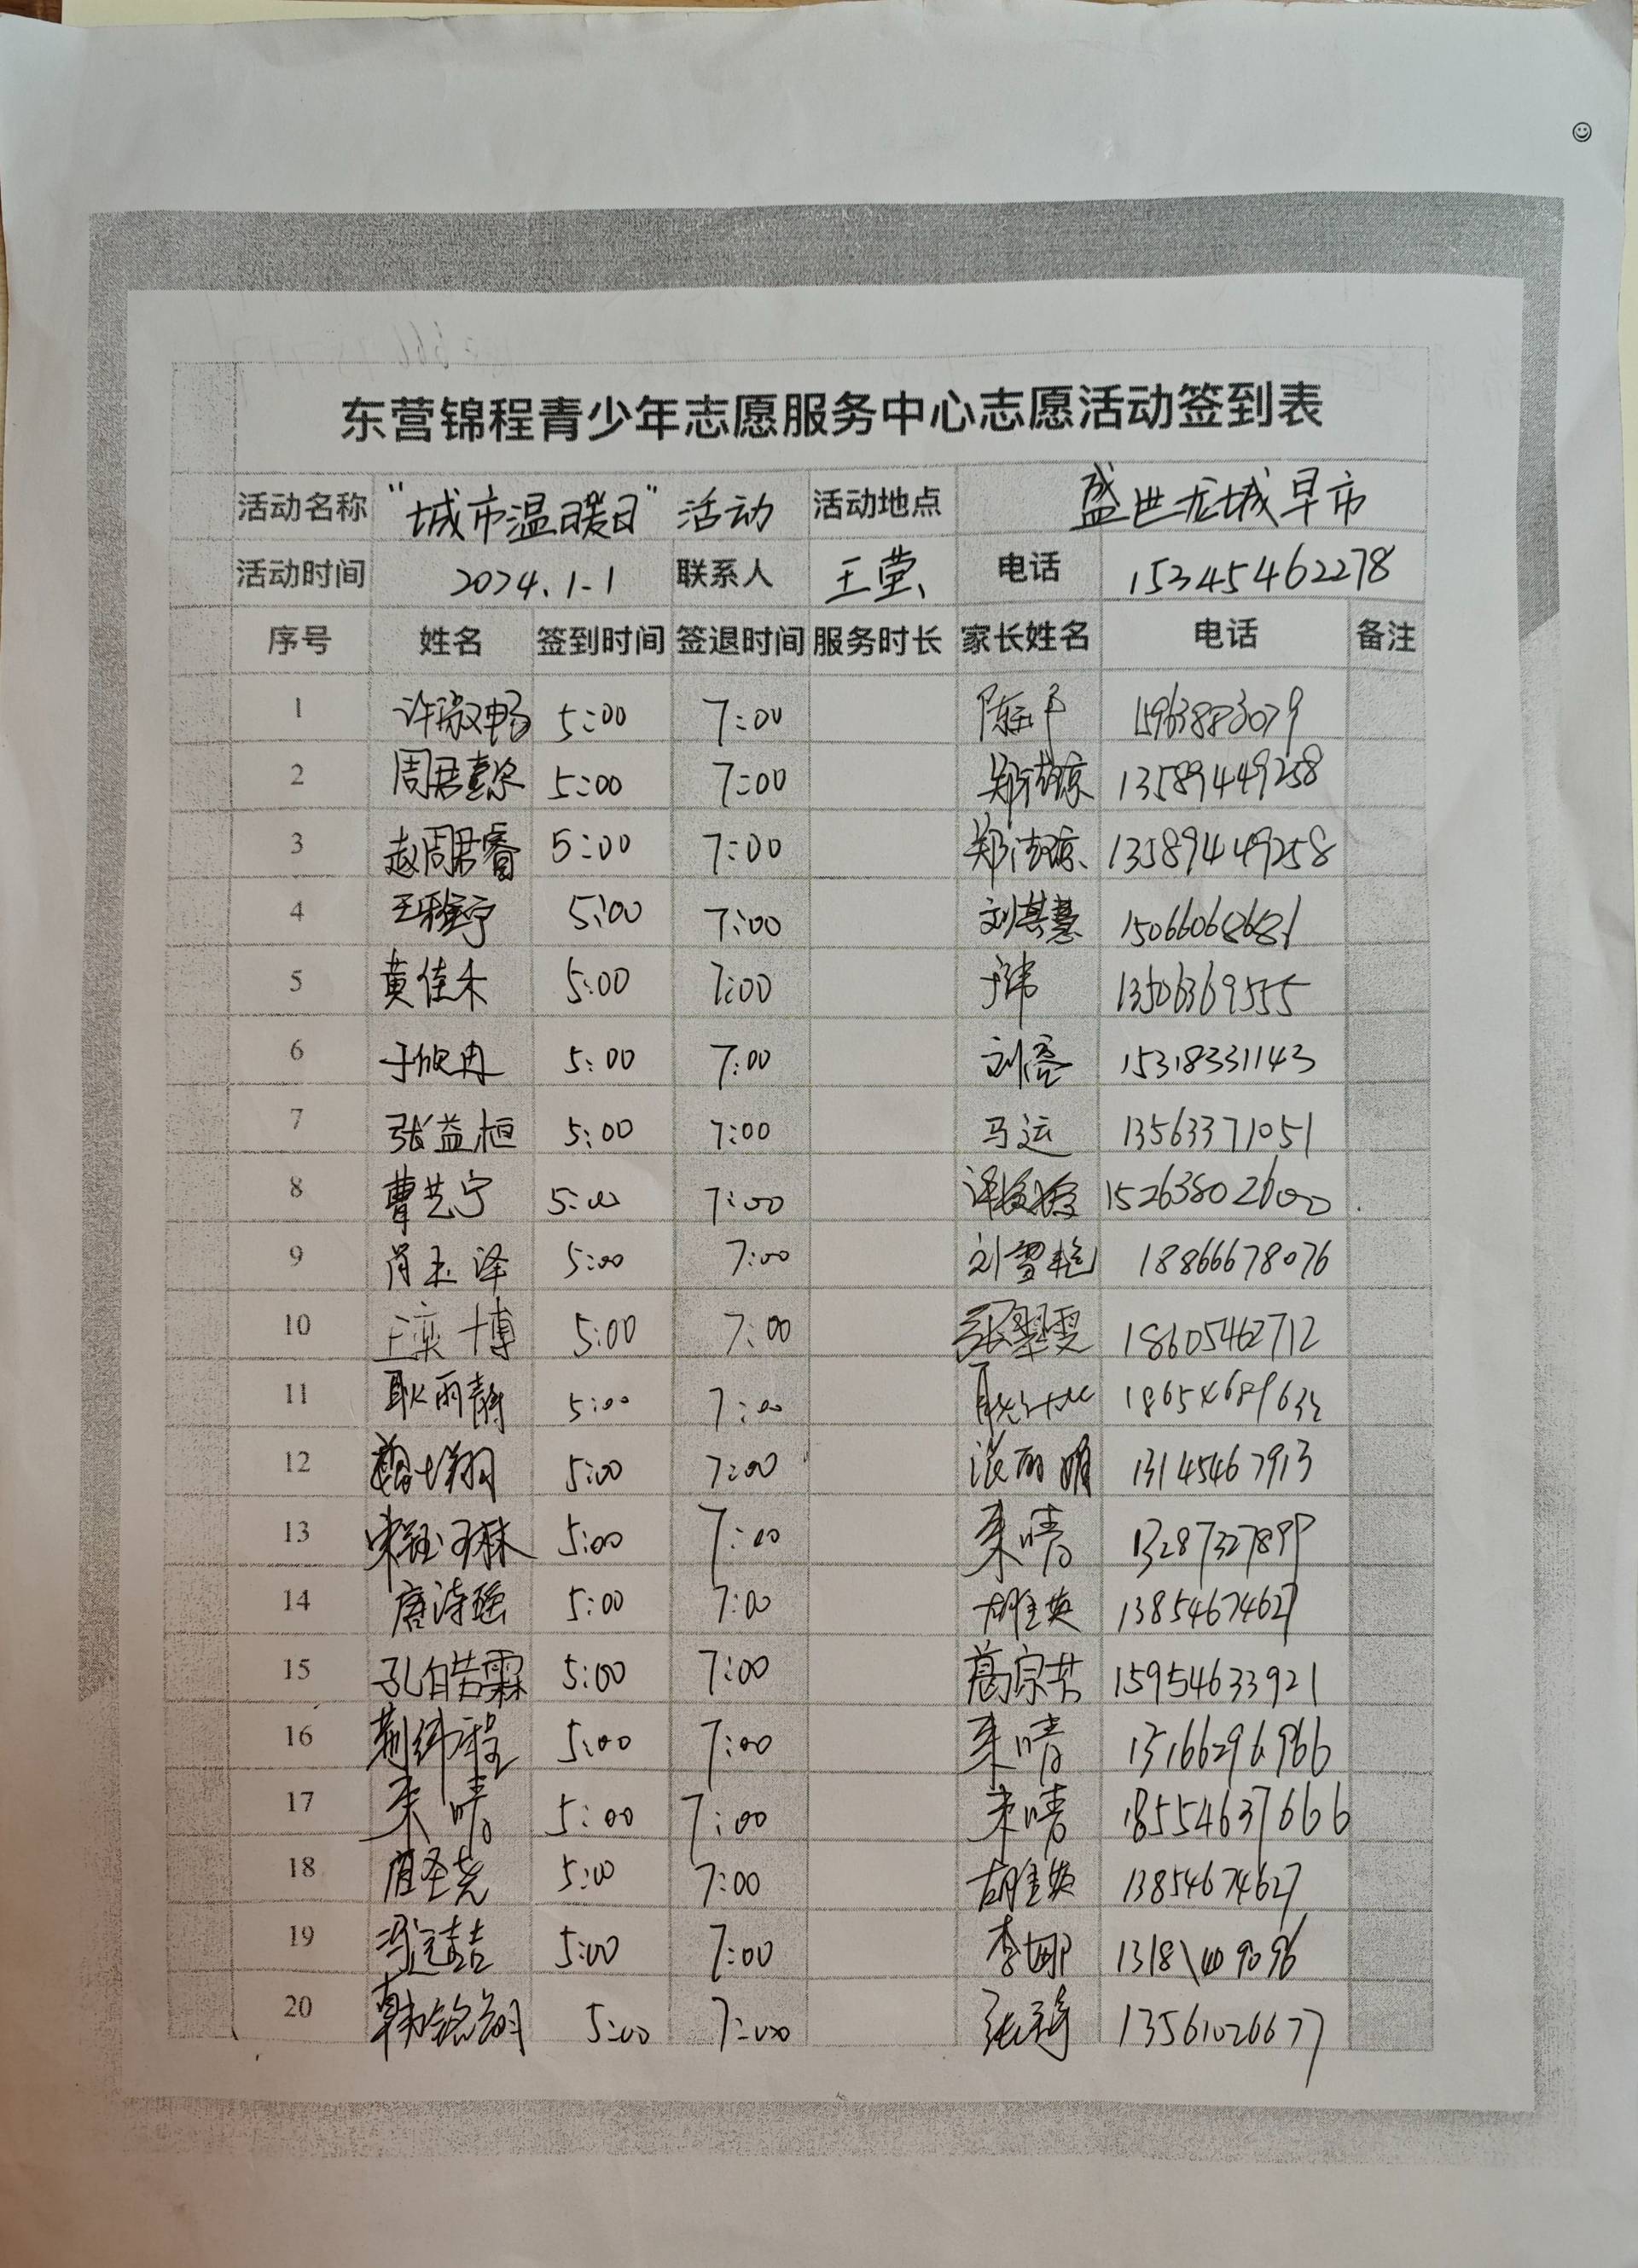 东营锦程青少年志愿服务中心志愿活动签到表
活动名称 "城市温暖日"活动 活动地点 盛世龙城早市
活动时间 2024.1-1 联系人 王莹 电话 15345462278
序号 姓名 签到时间 签退时间 服务时长 家长姓名 电话 备注
1 许淑畅 5:00 7:00 15963883079
2 周君 5:00 7:00 13589449258
3 赵周君睿 5:00 7:00 13589449258
4 王雅宁 5:00 7:00 刘其慧 15066068681
5 黄佳禾 5:00 7:00 于伟 13506369555
6 于欣冉 5:00 7:00 15318331143
7 张益恒 5:00 7:00 马运 13563371051
8 曹艺宁 5:00 7:00 15263802600
9 肖玉泽 5:00 7:00 刘雪艳 18866678076
10 王奕博 5:00 7:00 张翠雯 18605462712
11 耿雨静 5:00 7:00
12 5:00 7:00 张丽娟 13145467913
13 5:00 7:00 来晴 13287327899
14 唐诗瑶 5:00 7:00 胡金英 13854674627
15 孔皓霖 5:00 7:00 葛宗芳 15954633921
16 荆纬程 5:00 7:00 来晴 13166296966
17 来晴 5:00 7:00 来晴 18554637666
18 唐圣尧 5:00 7:00 胡金英 13854674627
19 冯定喆 5:00 7:00 李娜
20 韩铭翔 5:00 7:00 13561026677